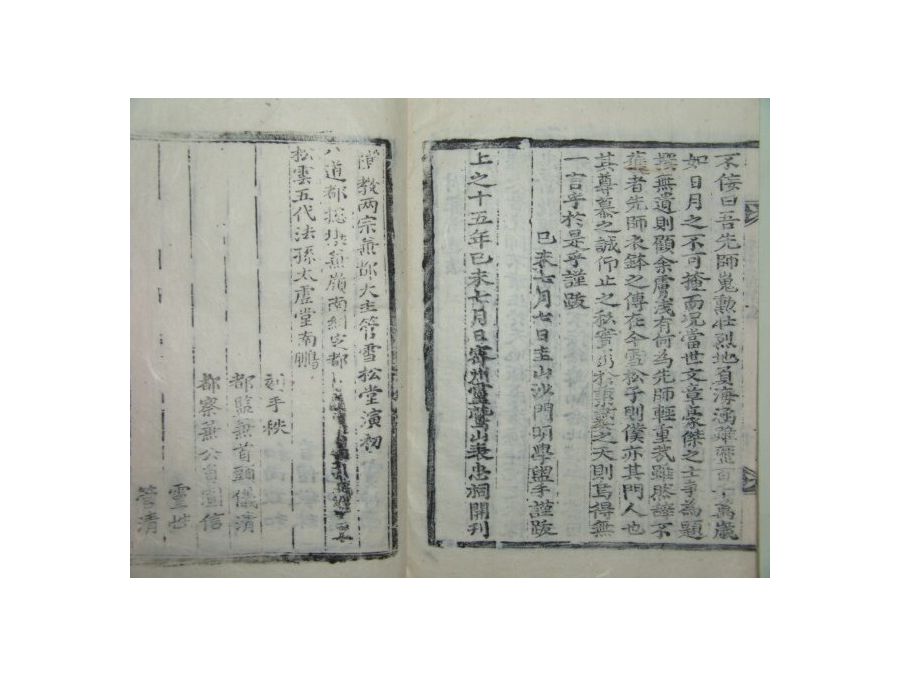 不佞曰吾先師嵬勳壯烈地負海涵雖歷百千萬歲
如日月之不可掩而況當世文章豪傑之士爭為題
撰無遺則顧余膚淺有何為先師輕重哉雖然辭不
者先師衣鉢之傳在今雪松子則僕亦其門人也
其尊慕之誠仰止之私實出於秉彝之天則烏得無
一言乎於是乎謹跋
己未七月七日圭山沙門明學盥手謹跋
上之十五年己未七月日密州靈鷲山表忠祠開刊
禪教兩宗兼都大主管雪松堂演初
八道都摠攝兼嶺南糾正都
松雲五代法孫太虛堂南鵬
刻手秩
都監兼首頭儀清
都察兼公員圓信
管清